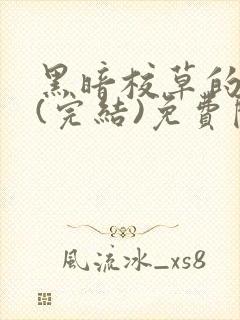 黑暗校草的
(完結)免費
風流冰_xs8